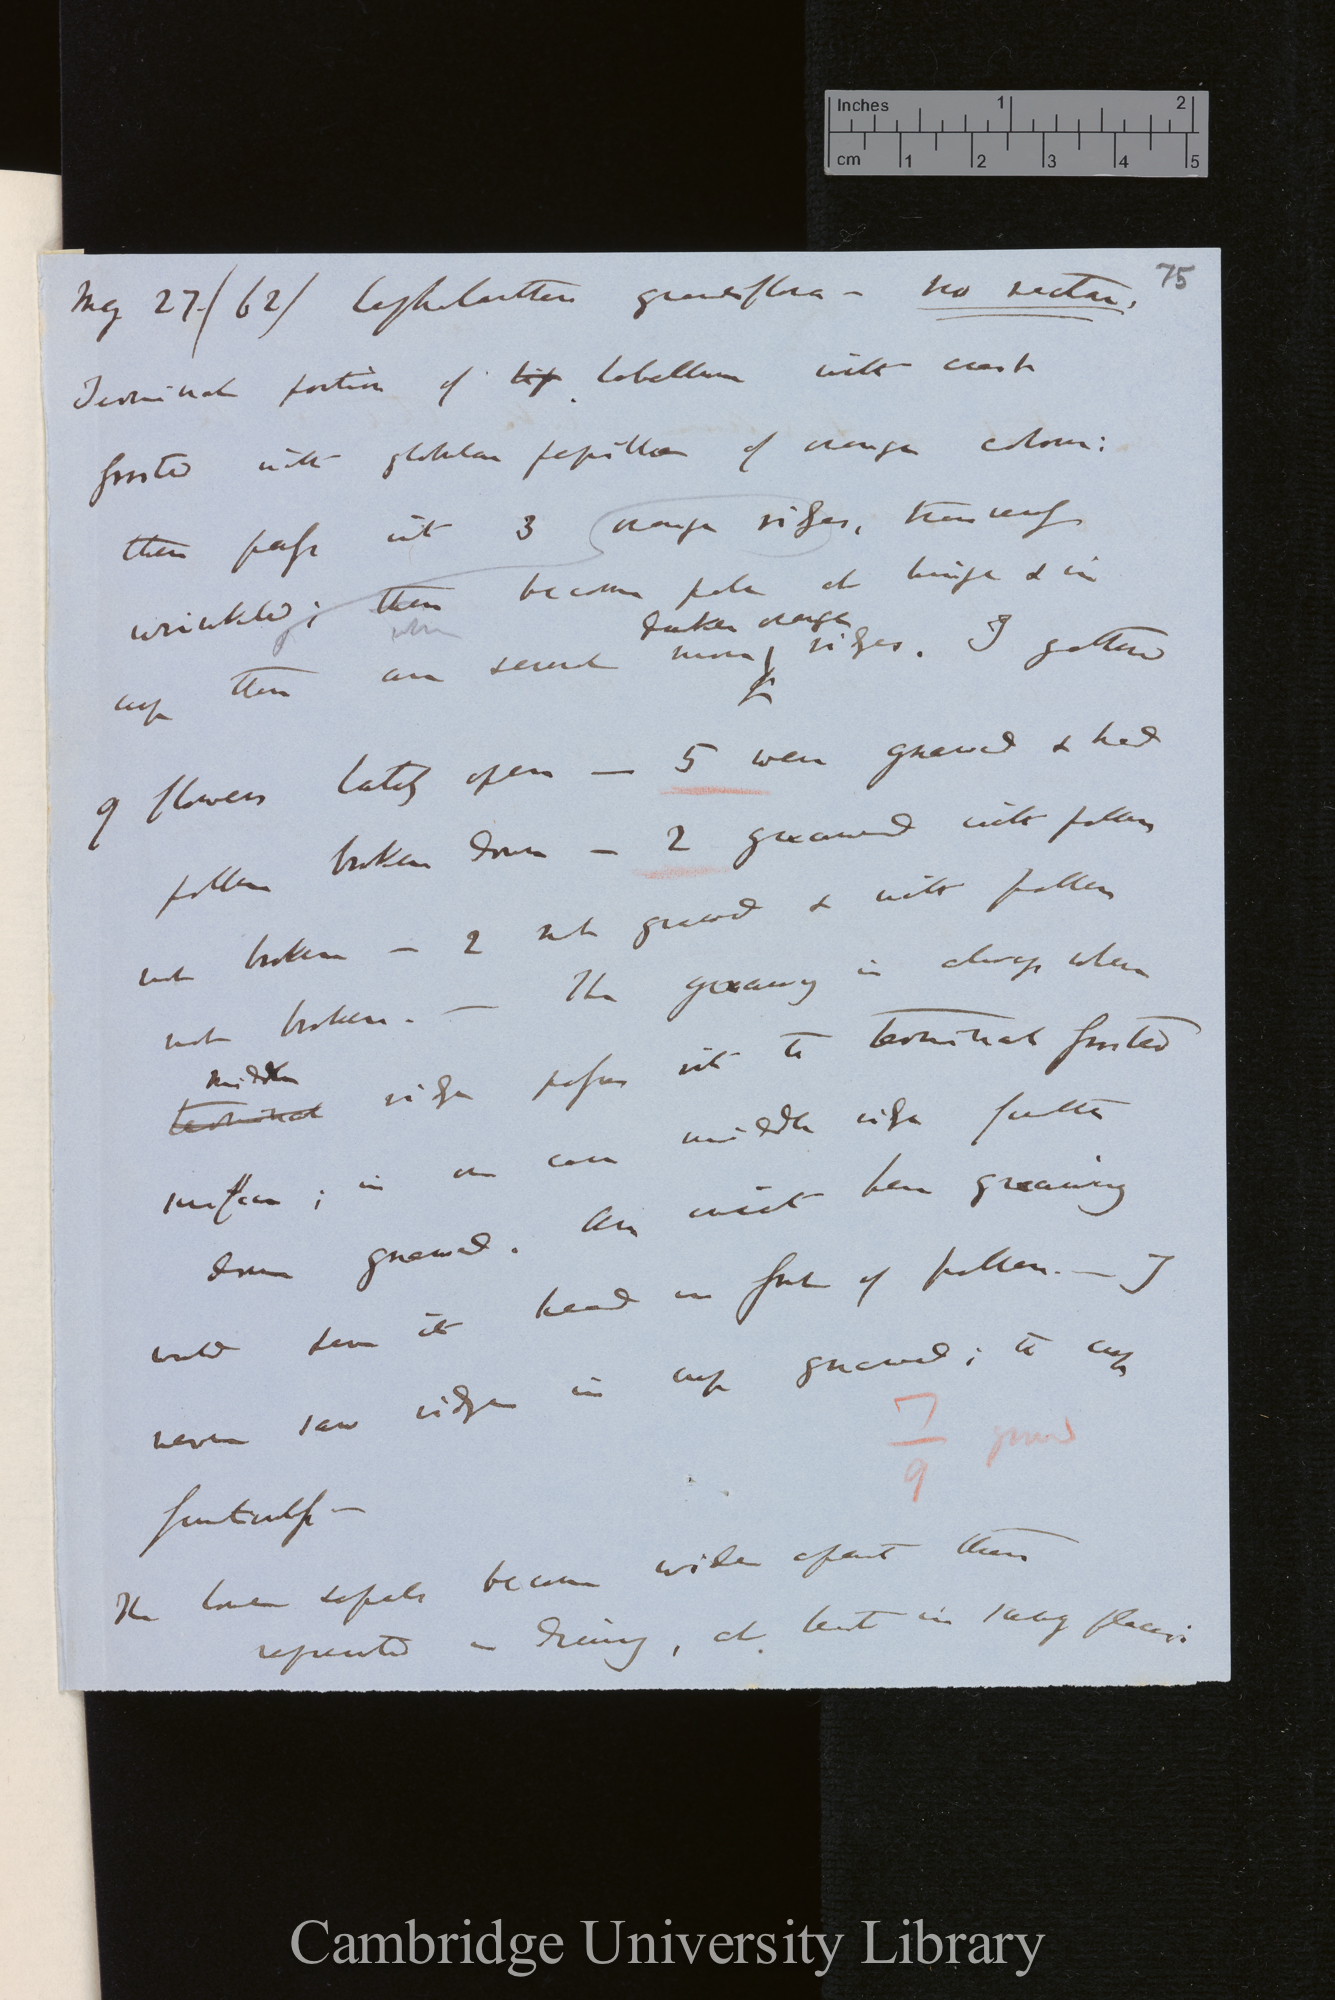 Inches 1 2
cm 1 2 3 4 5
75
May 27/62/ Cephalanthera grandiflora — no nectar.
Terminal portion of lip labellum with crest
frosted with globular papillæ of orange colour:
then pass into 3 orange ridges, transversely
wrinkled; these become pale at hinge & in
when
darker orange
cup there are several more ridges. I gathered
9 flowers lately open — 5 were gnawed & had
pollen broken down — 2 gnawed with pollen
not broken — 2 not gnawed & with pollen
not broken. — The gnawing is always where
middle
terminal ridge passes into the terminal frosted
surface; in one case middle ridge further
down gnawed. An insect when gnawing
would have its head in front of pollen. — I
never saw ridges in cup gnawed; the cup
7
9 gnawed
The lower sepals become wider apart than
represented in Drawing, at least in many flowers